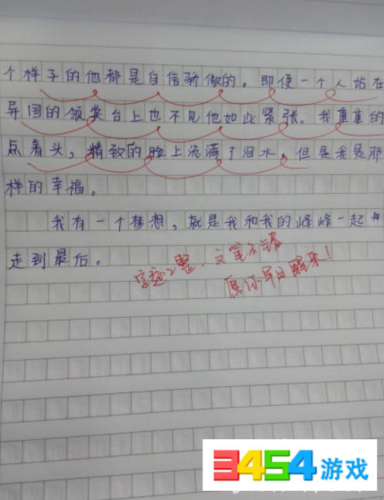 个样子的他都是自信骄傲的。即使一个人站在
异国的领奖台上也不见他如此紧张。我重重的
点着头，精致的脸上流满了泪水，但是我是那
样的幸福。
我有一个梦想，就是我和我的峰峰一起
走到最后。
字迹工整，文笔不错
愿你早日醒来！
3454游戏